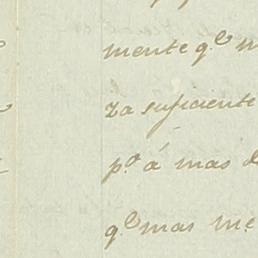 mente q.e m
za suficiente
p.o á mas d
q.e mas me